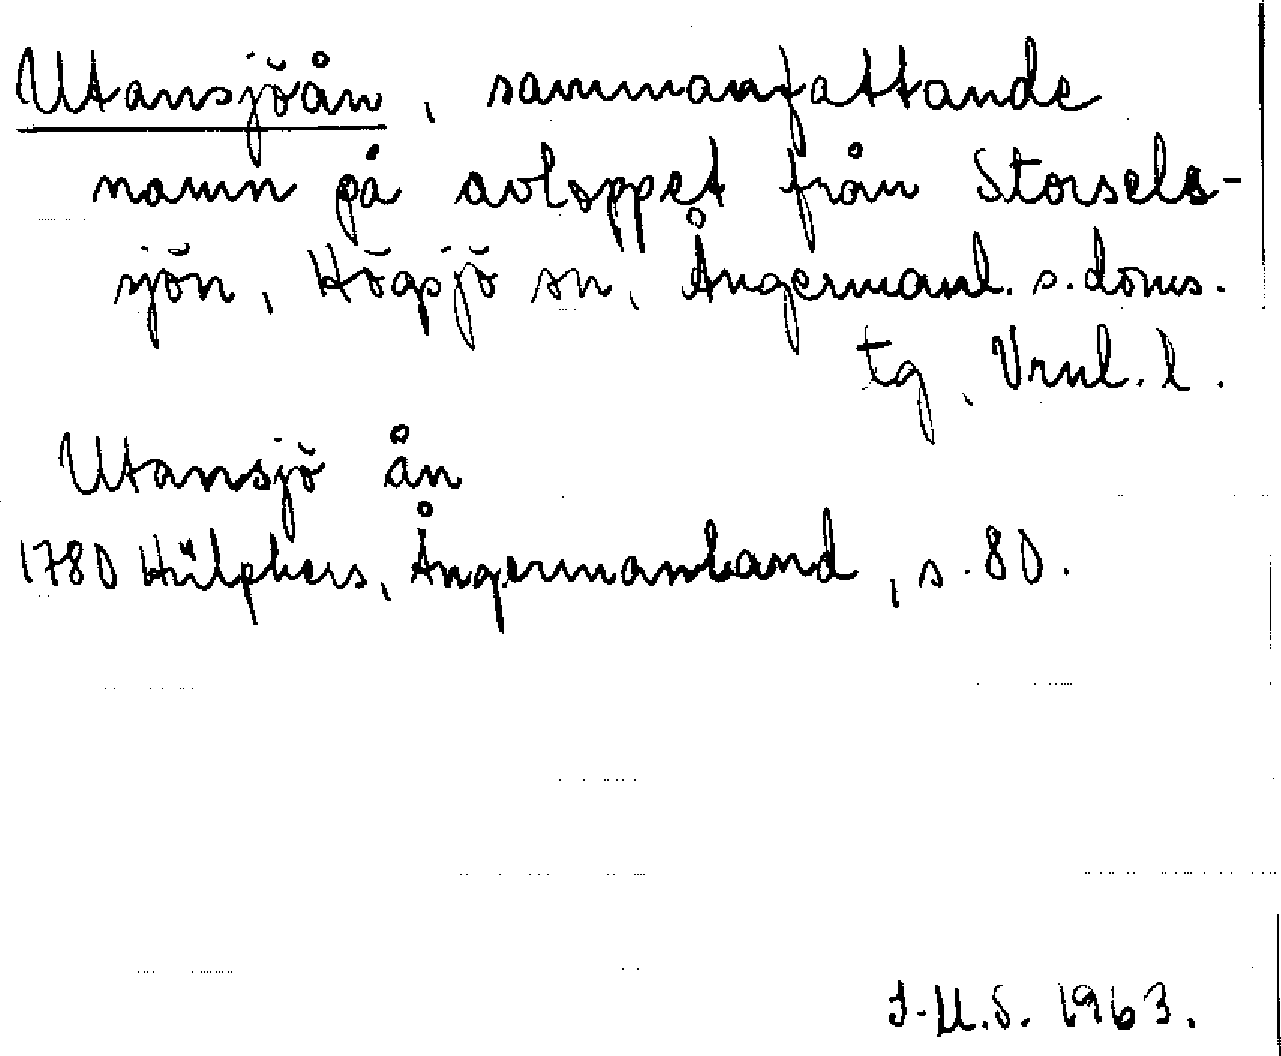 Utansjöån, sammanfattande
namn på avloppet från Storsels-
sjön, Högsjö sn, Ångermanl. s. doms.
tg, Vrnl. l.
Utansjö ån
1780 Hülphers, Ångermanland, s. 80.
I-M.S. 1963.